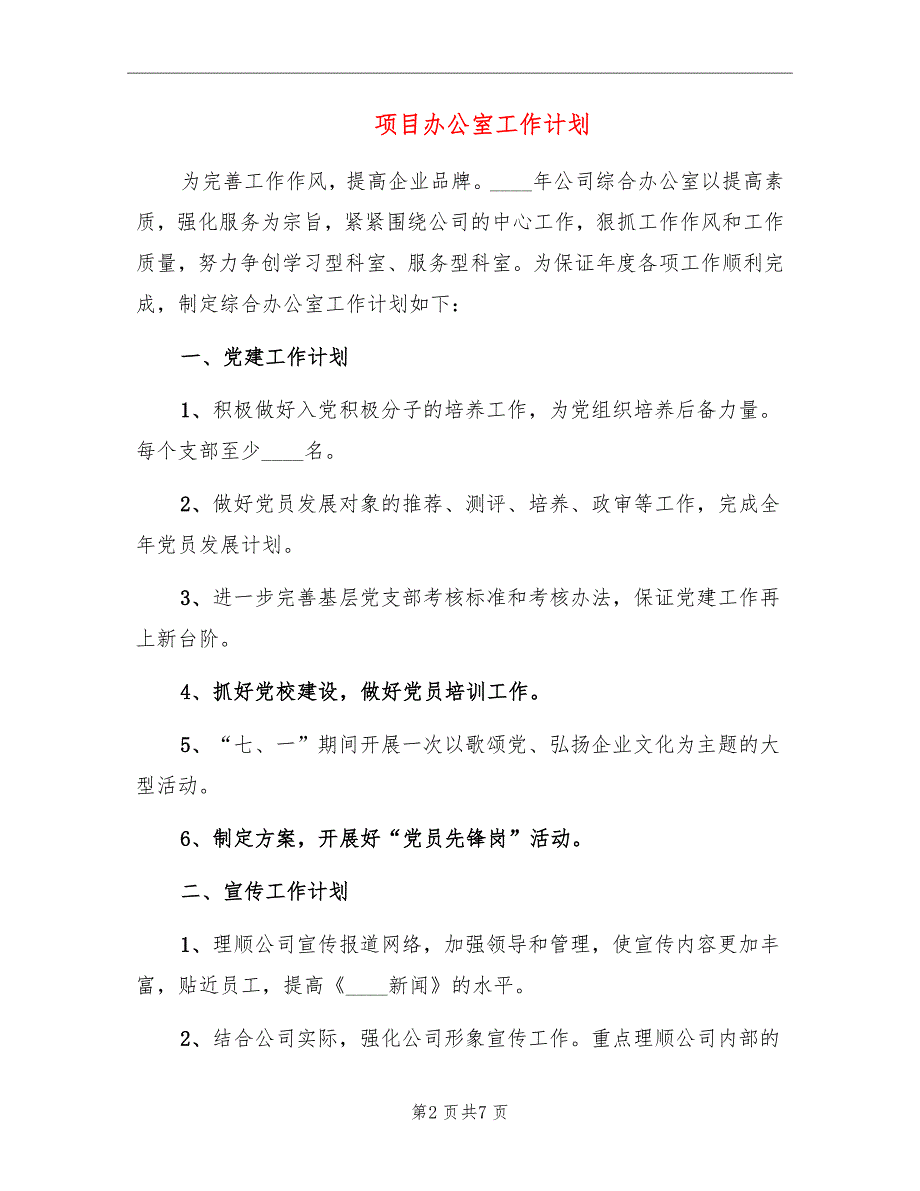 项目办公室工作计划
为完善工作作风，提高企业品牌。____年公司综合办公室以提高素
质，强化服务为宗旨，紧紧围绕公司的中心工作，狠抓工作作风和工作
质量，努力争创学习型科室、服务型科室。为保证年度各项工作顺利完
成，制定综合办公室工作计划如下：
一、党建工作计划
1、积极做好入党积极分子的培养工作，为党组织培养后备力量。
每个支部至少____名。
2、做好党员发展对象的推荐、测评、培养、政审等工作，完成全
年党员发展计划。
3、进一步完善基层党支部考核标准和考核办法，保证党建工作再
上新台阶。
4、抓好党校建设，做好党员培训工作。
5、“七、一”期间开展一次以歌颂党、弘扬企业文化为主题的大
型活动。
6、制定方案，开展好“党员先锋岗”活动。
二、宣传工作计划
1、理顺公司宣传报道网络，加强领导和管理，使宣传内容更加丰
富，贴近员工，提高《____新闻》的水平。
2、结合公司实际，强化公司形象宣传工作。重点理顺公司内部的
第2 页共7 页